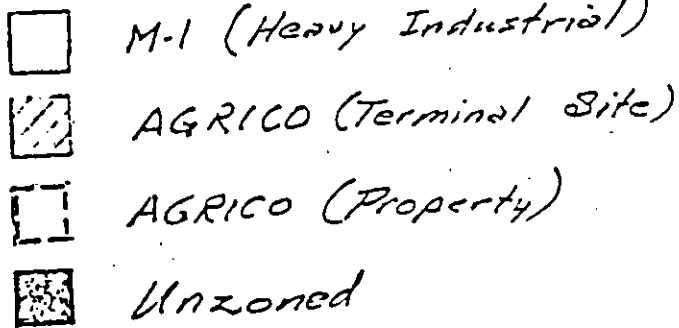 M-1 (Heavy Industrial)
AGRICO (Terminal Site)
AGRICO (Property)
Unzoned